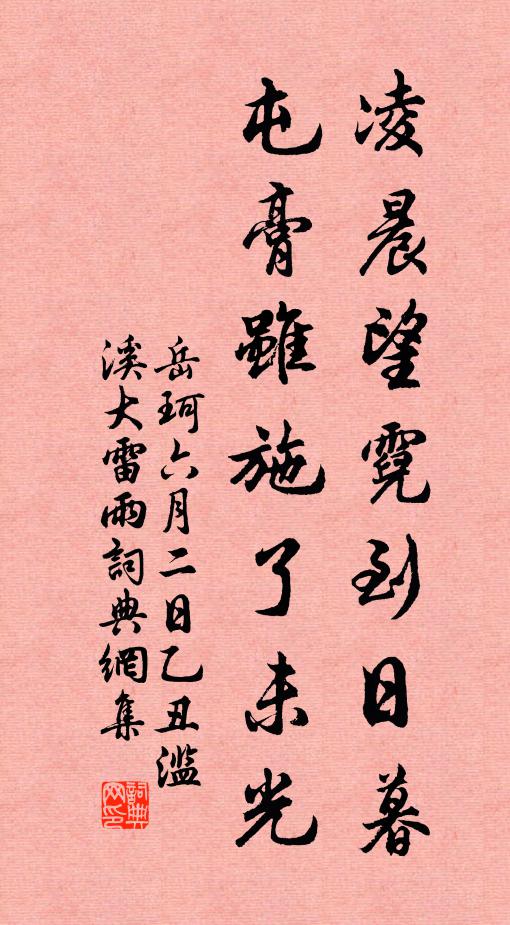 凌晨望霓到日暮
屯膏雖施了未光
岳珂六月二日乙丑濫
溪大雷雨詞典網集
詞典
网印